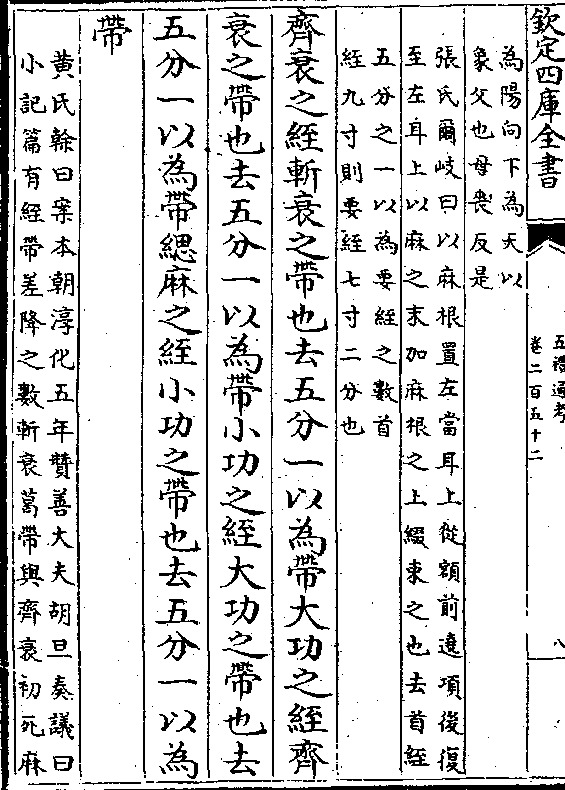 欽定四庫全書
五禮通考
卷二百五十二
八
為陽向下為天以
象父也母喪反是
張氏爾岐曰以麻根置左當耳上從額前遶項後復
至左耳上以麻之末加麻根之上綴束之也去首絰
五分之一以為要絰之數首
絰九寸則要絰七寸二分也
齊衰之絰斬衰之帶也去五分一以為帶大功之絰齊
衰之帶也去五分一以為帶小功之絰大功之帶也去
五分一以為帶緦麻之絰小功之帶也去五分一以為
帶
黄氏榦曰案本朝淳化五年贊善大夫胡旦奏議曰
小記篇有絰帶差降之數斬衰葛帶與齊衰初死麻